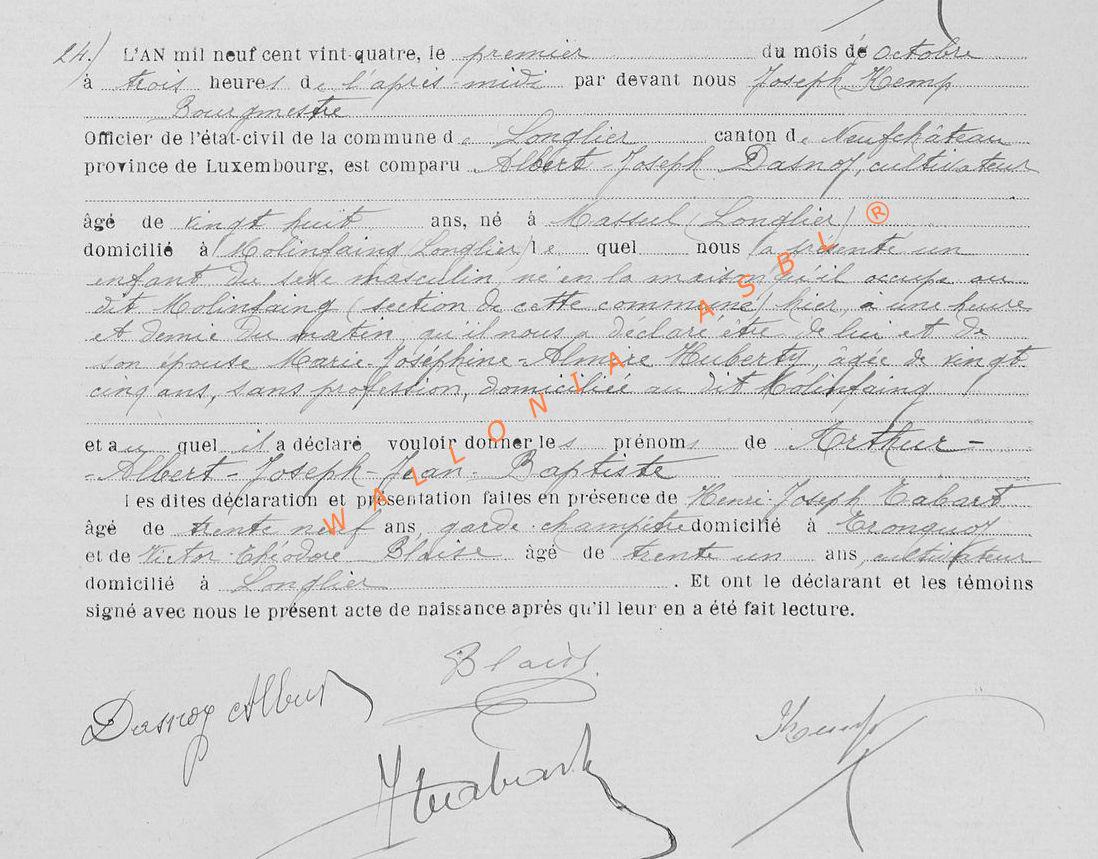 24.) L'AN mil neuf cent vint-quatre, le premier du mois de octobre
à trois heures de l'après-midi par devant nous Joseph Kemp
Bourgmestre
Officier de l'état-civil de la commune de Longlier canton de Neufchâteau
province de Luxembourg, est comparu Albert-Joseph Dasnoy, cultivateur
âgé de vingt huit ans, né à Massul (Longlier)
domicilié à Molinfaing (Longlier) lequel nous a présenté un
enfant du sexe masculin né en la maison qu'il occupe au
dit Molinfaing (section de cette commune) hier, à une heure
et demie du matin, qu'il nous a déclaré être de lui et de
son épouse Marie-Joséphine-Almère Huberty, âgée de vingt
cinq ans, sans profession, domiciliée au dit Molinfaing
et auquel il a déclaré vouloir donner les prénoms de Arthur-
-Albert-Joseph-Jean-Baptiste
Les dites déclaration et présentation faites en présence de Henri-Joseph Tabart
âgé de trente neuf ans, garde-champêtre domicilié à Tronquoy
et de Victor-Théodore Blaise âgé de trente un ans, cultivateur
domicilié à Longlier. Et ont le déclarant et les témoins
signé avec nous le présent acte de naissance après qu'il leur en a été fait lecture.
WALLONIA ASBL ®
Blaise
Dasnoy Albert
Kemp